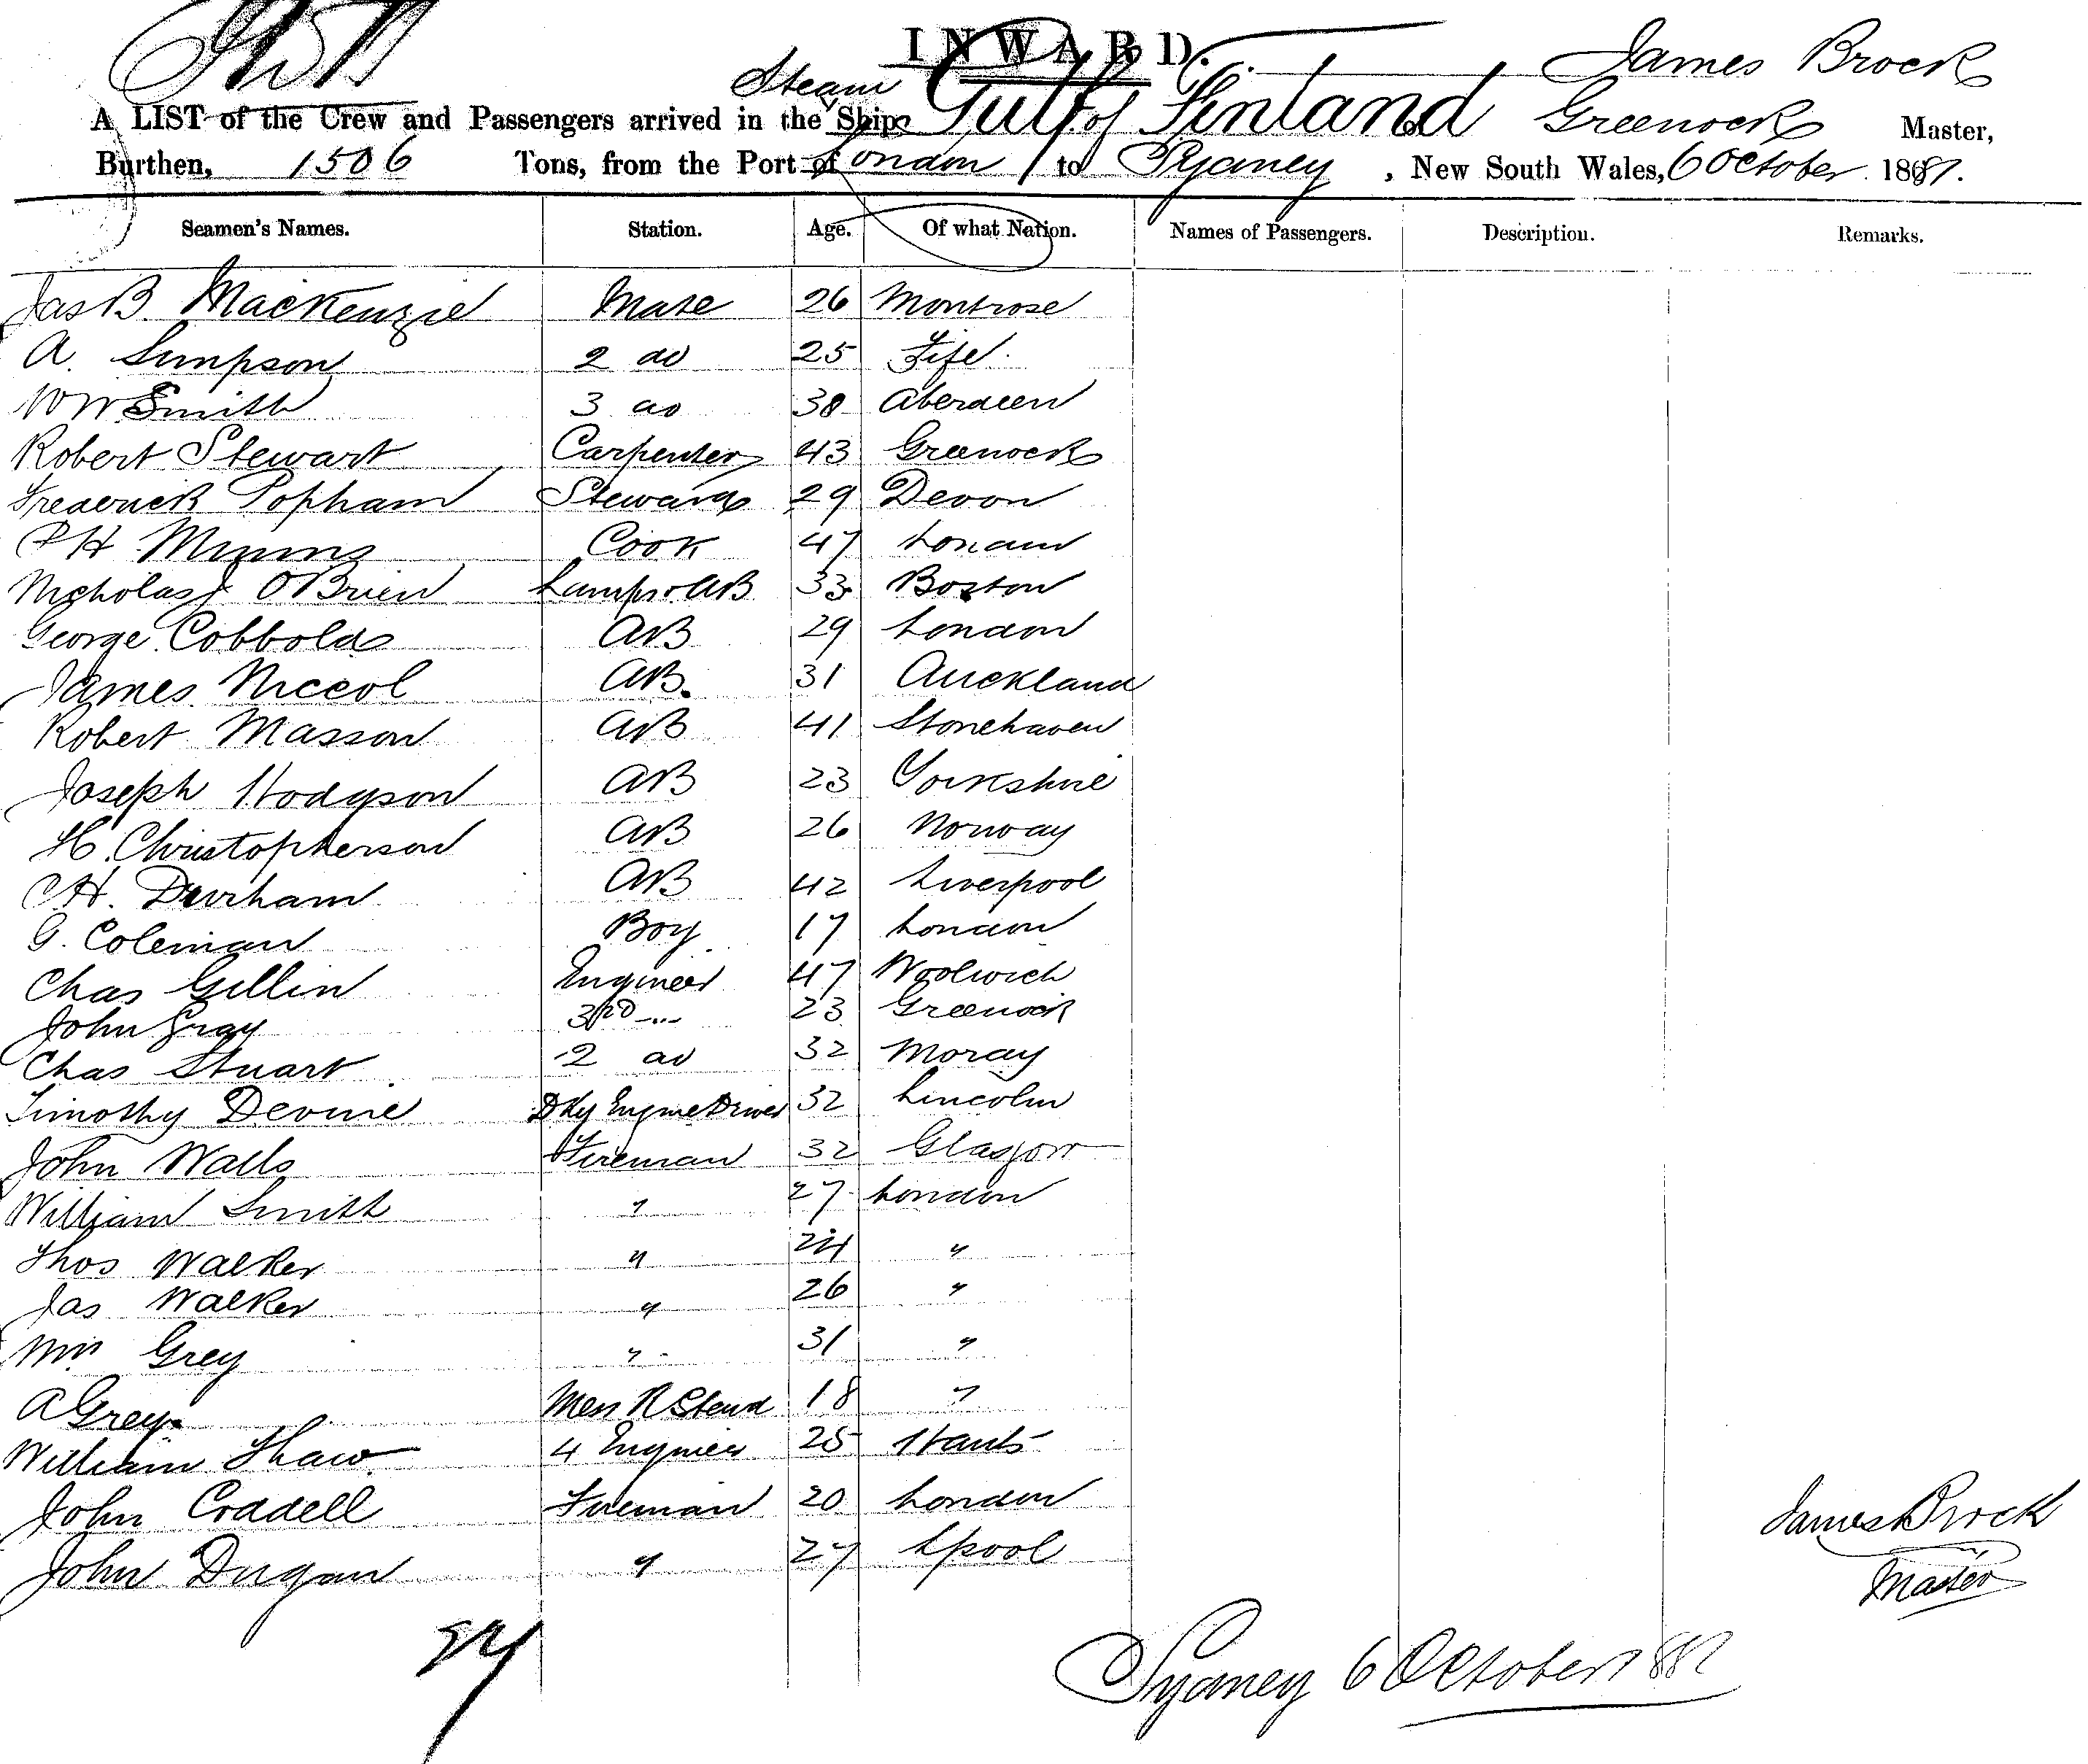 INWARD.
James Brock
A LIST of the Crew and Passengers arrived in the Steam Ship Gulf of Finland of Greenock Master,
Burthen, 1506 Tons, from the Port of London to Sydney, New South Wales, 6 October 1881.
Seamen's Names. Station. Age. Of what Nation. Names of Passengers. Description. Remarks.
Jas B. Mackenzie Mate 26 Montrose
A. Simpson 2 do 25 Fife.
W W Smith 3 do 38 Aberdeen
Robert Stewart Carpenter 43 Greenock
Frederick Popham Steward 29 Devon
Cook 47 London
Nicholas J O'Brien Lamps & AB 33 Boston
George Cobbold AB 29 London
James Niccol AB. 31 Auckland
Robert Masson AB 41 Stonehaven
Joseph Hodgson AB 23 Yorkshire
H. Christopherson AB 26 Norway
C H. Durham AB 42 Liverpool
G. Coleman Boy 17 London
Chas Gillin Engineer 47 Woolwich
John Gray 3rd " 23 Greenock
Chas Stuart 2 do 32 Moray
Timothy Devine Dky Engine Driver 32 Lincoln
John Walls Fireman 32 Glasgow
William Smith " 27 London
Thos Walker " 24 "
Jas Walker " 26 "
Wm Grey " 31 "
A Grey Mess R Steward 18 "
William Shaw 4 Engineer 25 Hants
John Craddell Fireman 20 London
John Dugan " 27 Lpool
James Brock
Master
27
Sydney 6 October 1881